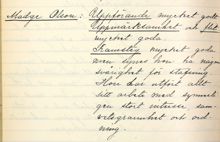 Madge Olson: Uppförande mycket goda
Uppmärksamhet och flit
mycket goda.
Framsteg mycket goda
men synes hon ha någon
svårighet för stafning
Hon har utfört allt
sitt arbete med synner
gen stort intresse sam
vetsgrannhet och ord
ning.